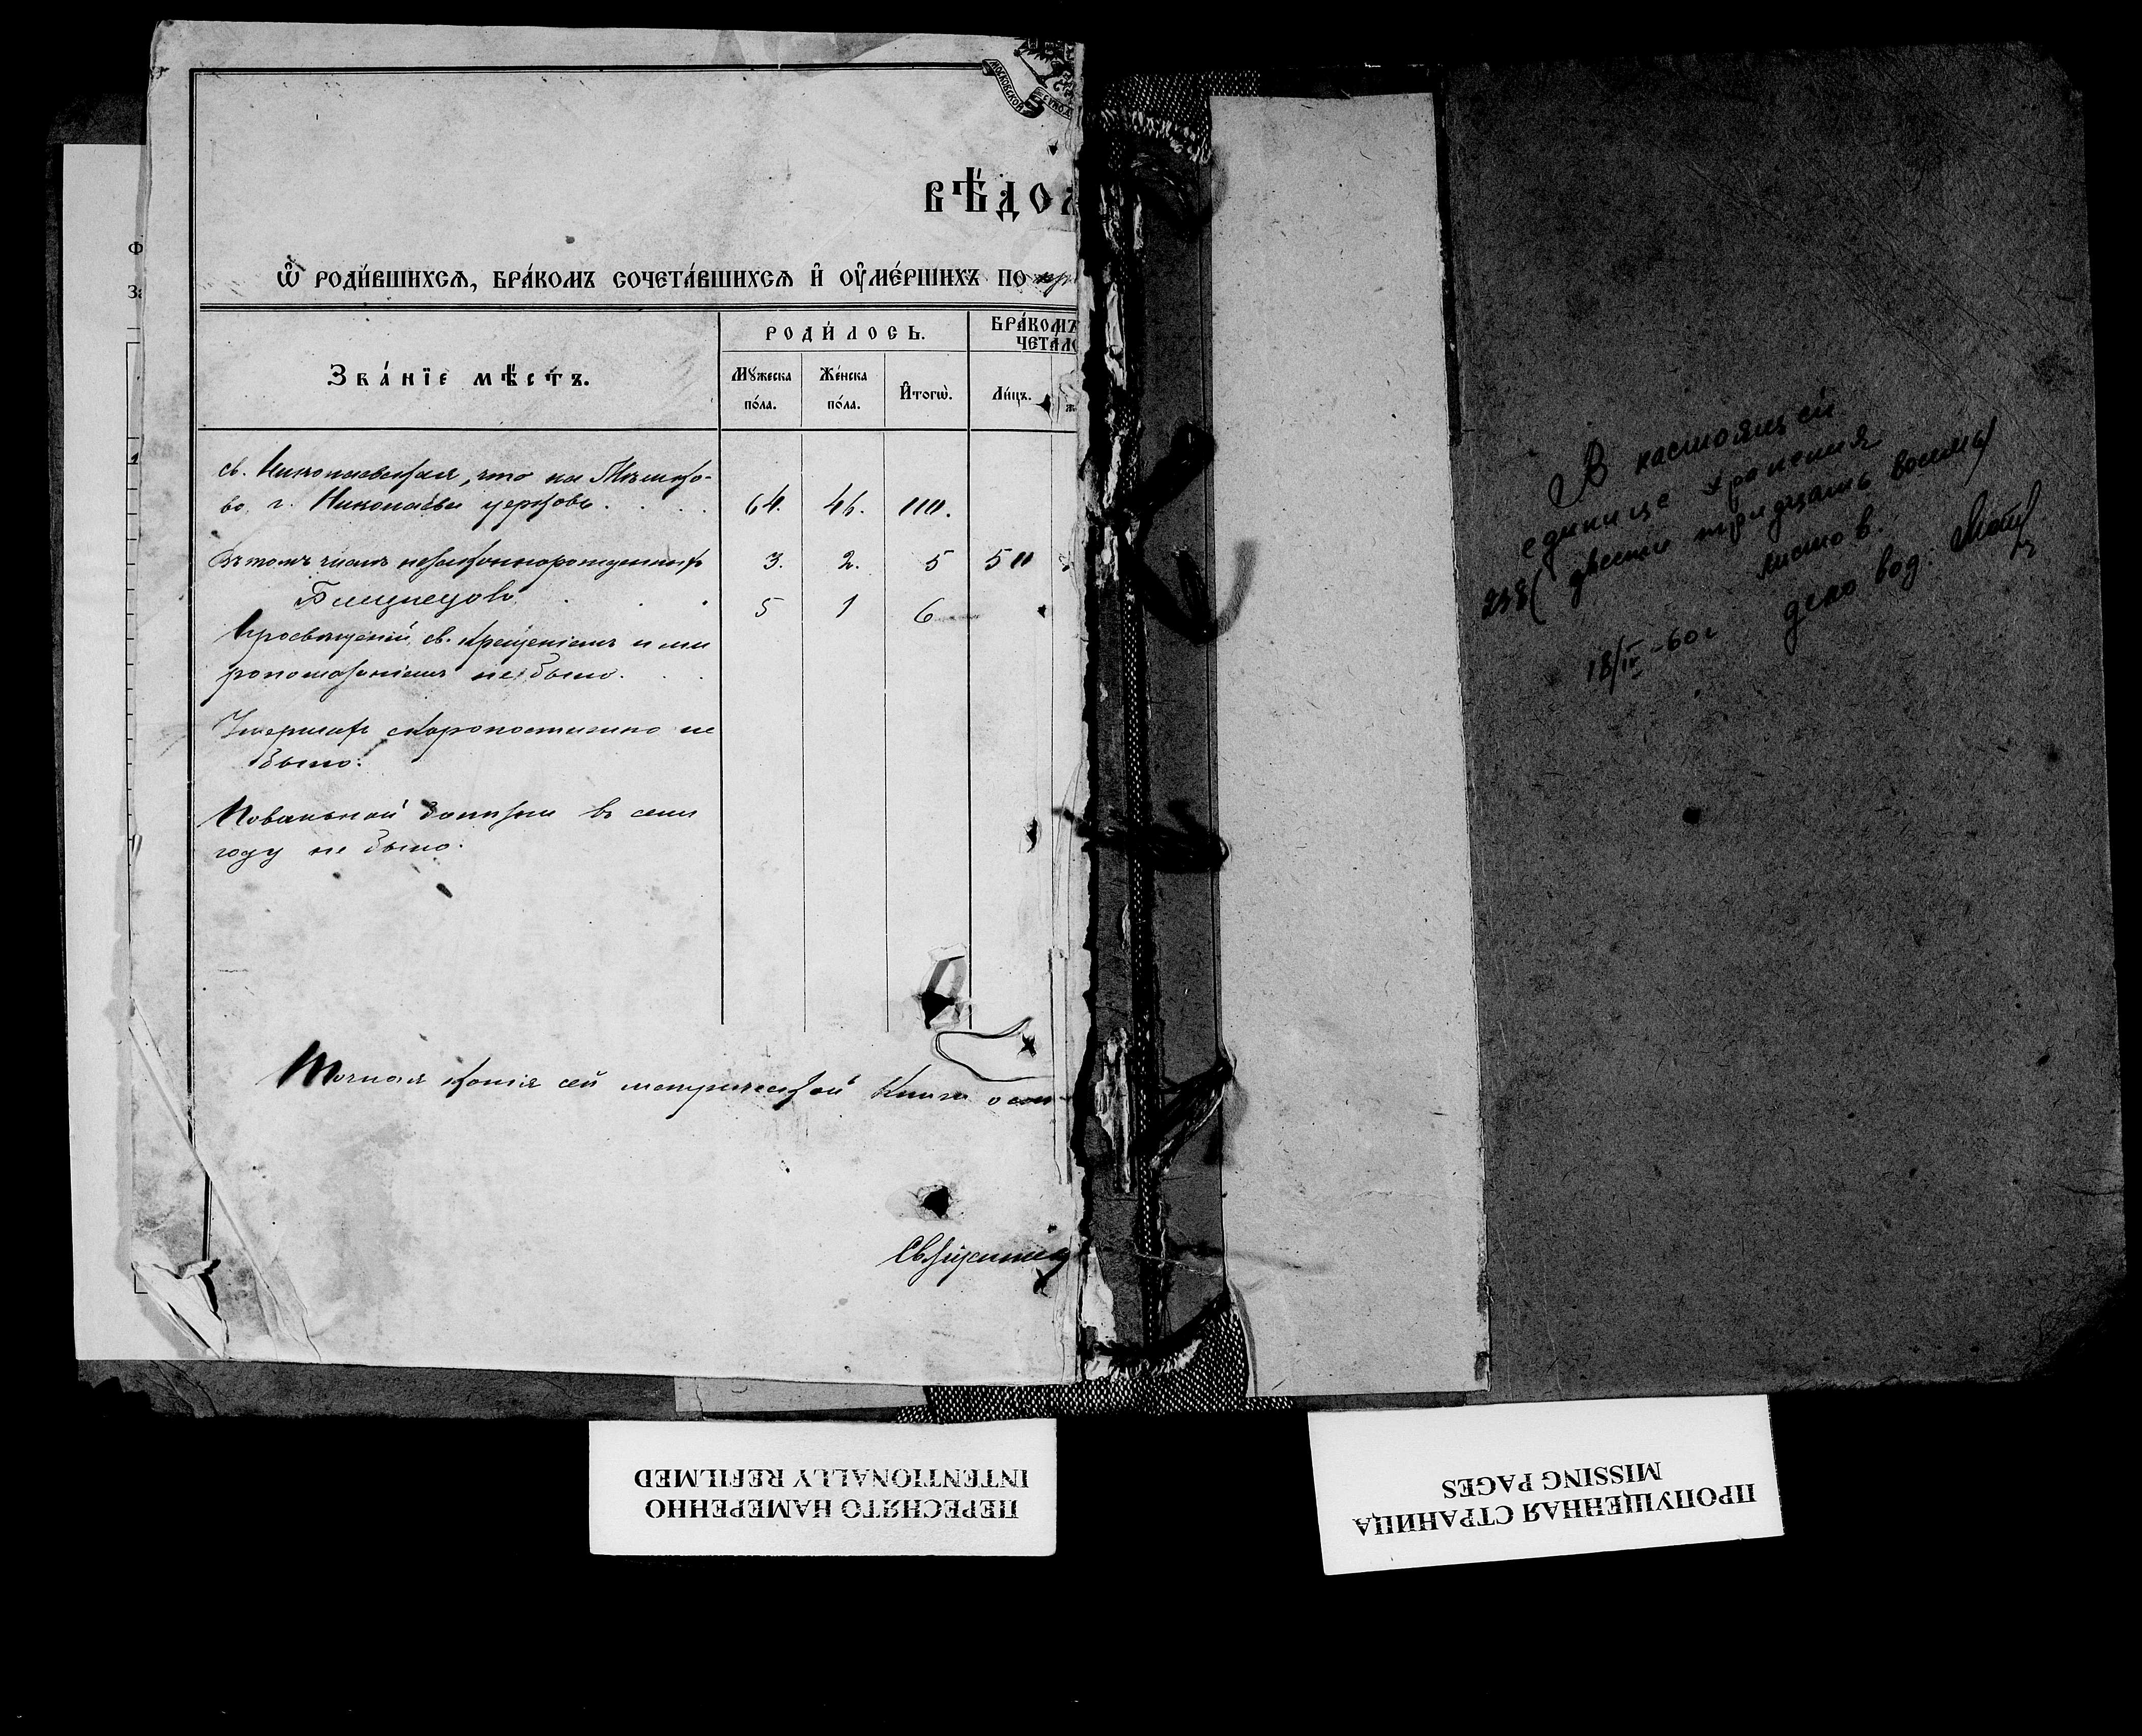 МОСКОВСКОЙ
ВѢ́ДО
Ѡ҆ РОДИ́ВШИХСѦ, БРА́КОМЪ СОЧЕТА́ВШИХСѦ И҆ ОУ҆МЕ́РШИХЪ ПО
ЗВА́НЇЕ МѢ́СТЪ.
РОДИ́ЛОСЬ.
БРА́КОМЪ
ЧЕТА́ЛО
Мꙋ́жеска по́ла.
Же́нска по́ла.
И҆тогѡ̀.
Ли́цъ.
св. Николаевская, что на
во, г. Николаева церковь . . . . 64. 46. 110.
Въ томъ числѣ незаконнорожденныхъ 3. 2. 5 50
Близнецовъ . . 5 1 6
Просвященій св. крещеніемъ и ми
ропомазаніемъ не было. . .
Умершихъ скоропостижно не
было.
Повальной болѣзни въ семъ
году не было.
Точная копія сей метрической книги
Священник
В настоящей
единице хранения
238 (двести тридцать восемь)
листов.
18/IV-60г дело вод.
ПЕРЕСНЯТО НАМЕРЕННО
INTENTIONALLY REFILMED
ПРОПУЩЕННАЯ СТРАНИЦА
MISSING PAGES